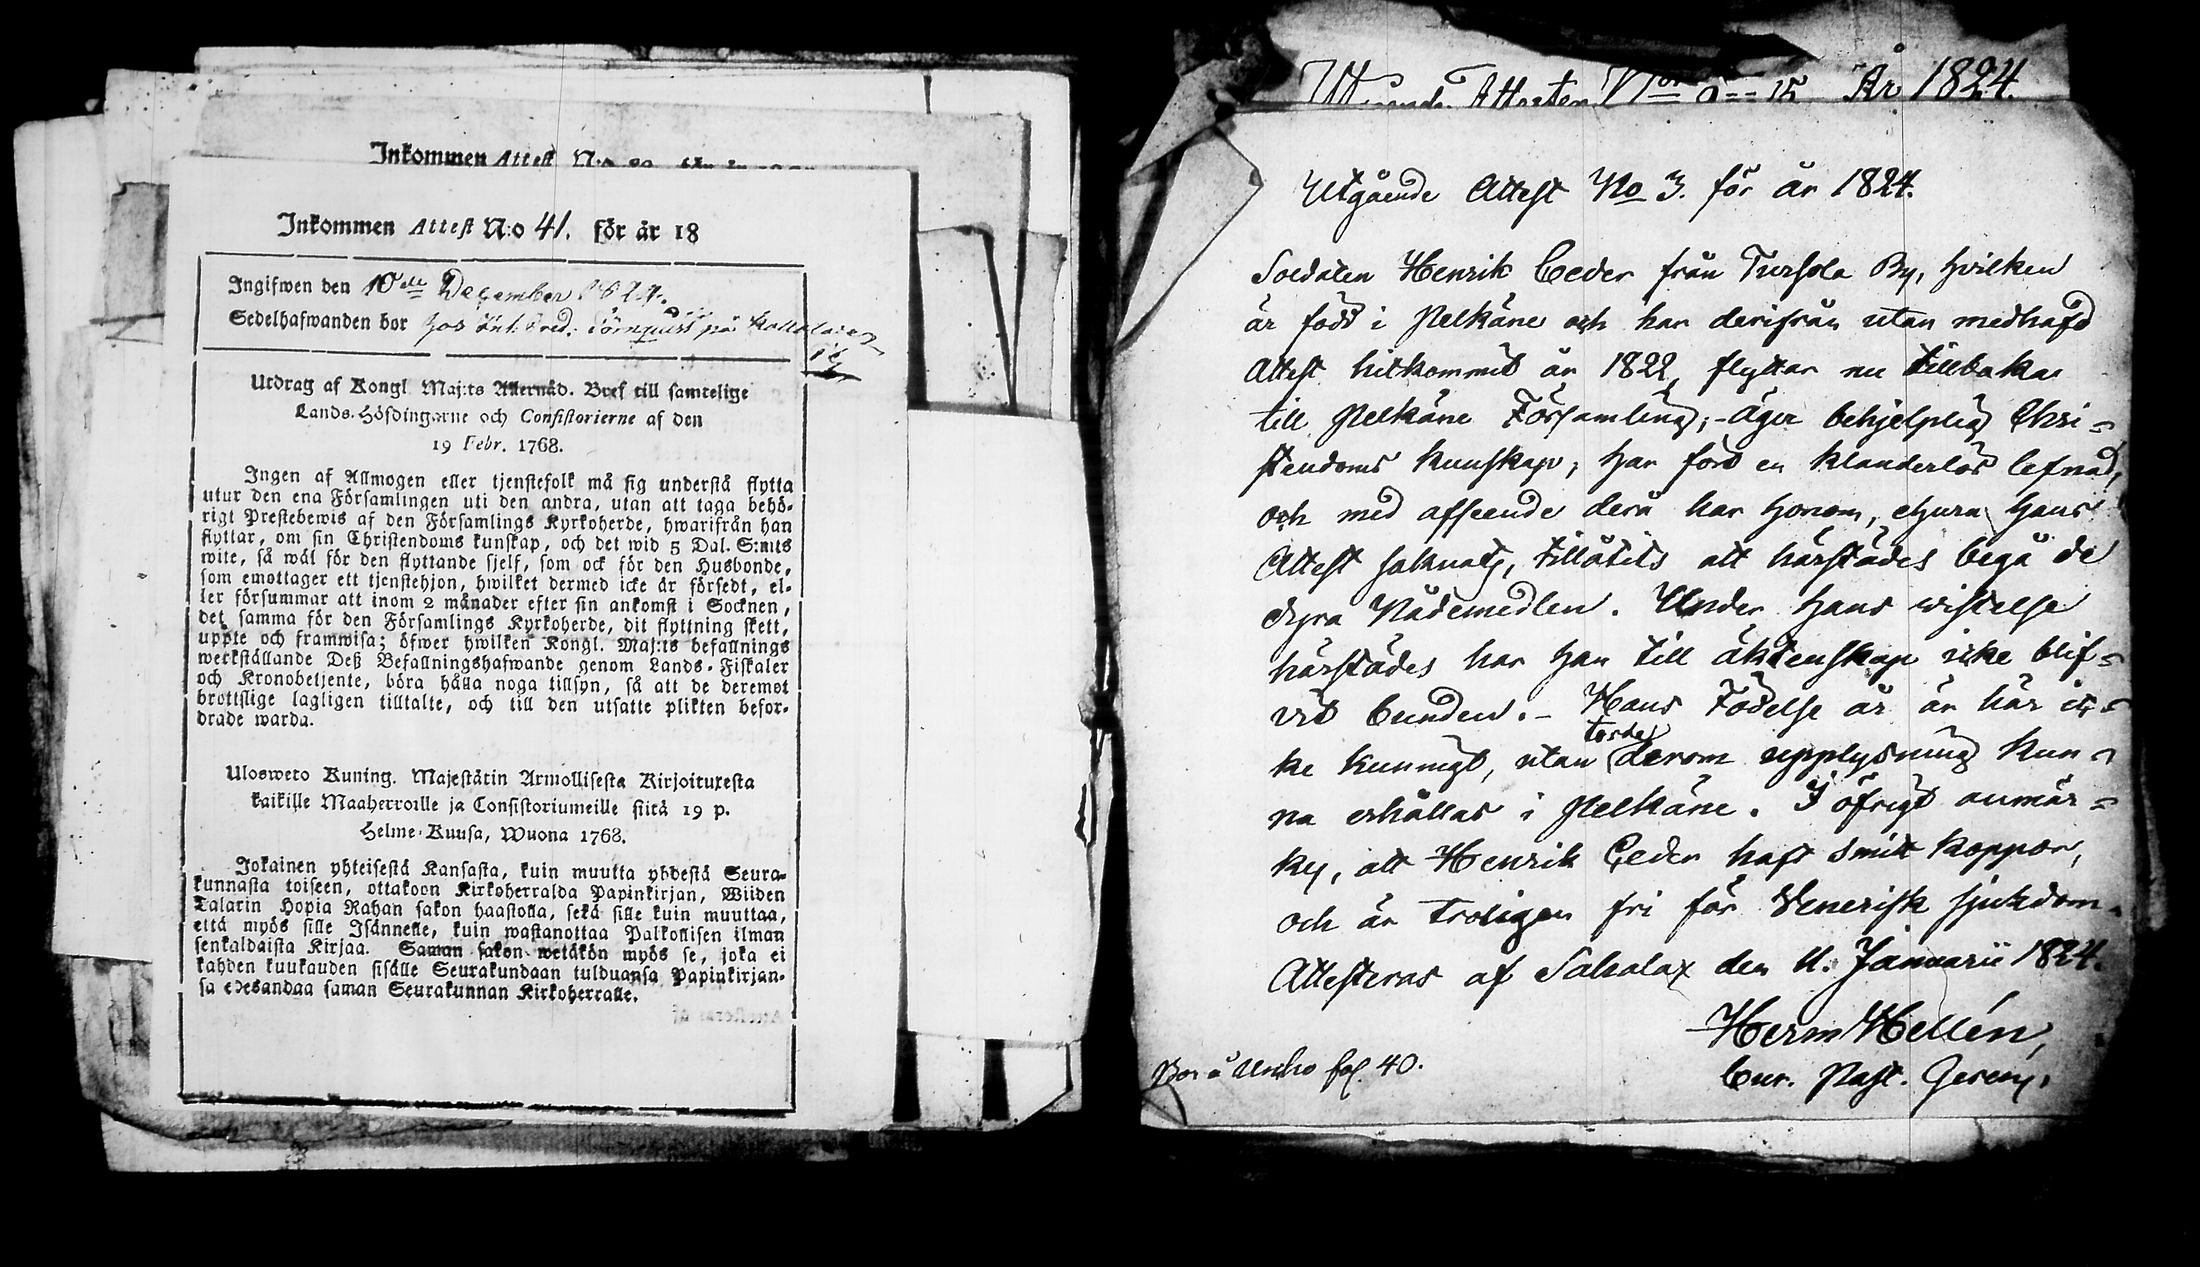 Inkommen Attest N:o
Inkommen Attest N:o 41. för år 18
Ingifwen den 10de December 1824.
Sedelhafwanden bor hos Fred: Törnquist på
Utdrag af Kongl. Maj:ts Allernåd. Bref till samtelige
Lands-Höfdingarne och Consistorierne af den
19 Febr. 1768.
Ingen af Allmogen eller tjenstefolk må sig understå flytta
utur den ena Församlingen uti den andra, utan att taga behö-
rigt Prestebewis af den Församlings Kyrkoherde, hwarifrån han
flyttar, om sin Christendoms kunskap, och det wid 5 Dal. S:mts
wite, så wäl för den flyttande sjelf, som ock för den Husbonde,
som emottager ett tjenstehjon, hwilket dermed icke är försedt, el-
ler försummar att inom 2 månader efter sin ankomst i Socknen,
det samma för den Församlings Kyrkoherde, dit flyttning skett,
uppte och framwisa; öfwer hwilken Kongl. Maj:ts befallnings
werkställande Deß Befallningshafwande genom Lands-Fiskaler
och Kronobetjente, böra hålla noga tillsyn, så att de deremot
brottslige lagligen tilltalte, och till den utsatte plikten befor-
drade warda.
Ulosweto Kuning. Majestätin Armollisesta Kirjoituxesta
kaikille Maaherroille ja Consistoriumeille siitä 19 p.
Helme-Kuusa, Wuona 1768.
Jokainen yhteisestä Kansasta, kuin muutta yhdestä Seura-
kunnasta toiseen, ottakoon Kirkoherralda Papinkirjan, Wiiden
Talarin Hopia Rahan sakon haastolla, sekä sille kuin muuttaa,
että myös sille Isännelle, kuin wastanottaa Palkollisen ilman
senkaldaista Kirjaa. Saman sakon wetäkön myös se, joka ei
kahden kuukauden sisälle Seurakundaan tulduansa Papinkirjan-
sa edesandaa saman Seurakunnan Kirkoherralle.
Attester N:o 15 År 1824.
Utgående Attest No 3. för år 1824.
Soldaten Henrik Ceder från Tursola By, hvilken
är född i Pelkäne och har derifrån utan medhafd
Attest hitkommit år 1822, flyttar nu tillbaka
till Pelkäne Församling; - äger behjelplig Chri-
stendoms kunskap, har fört en klanderlös lefnad,
och med afseende derå har honom, ehuru hans
Attest saknats, tillåtits att härstädes begå de
dyra Nådemedlen. Under hans wistelse
härstädes har han till äktenskap icke blif-
vit bunden. - Hans Födelse år är här ic-
torde
ke kunnigt, utan derom upplysning kun-
na erhållas i Pelkäne. I öfrigt anmär-
kes, att Henrik Ceder haft Smitt koppor,
och är troligen fri för Venerisk sjukdom.
Attesteras af Sahalax den 11. Januarii 1824.
Herm Hellén,
Cur. Past. Gerens.
Bor å fol. 40.